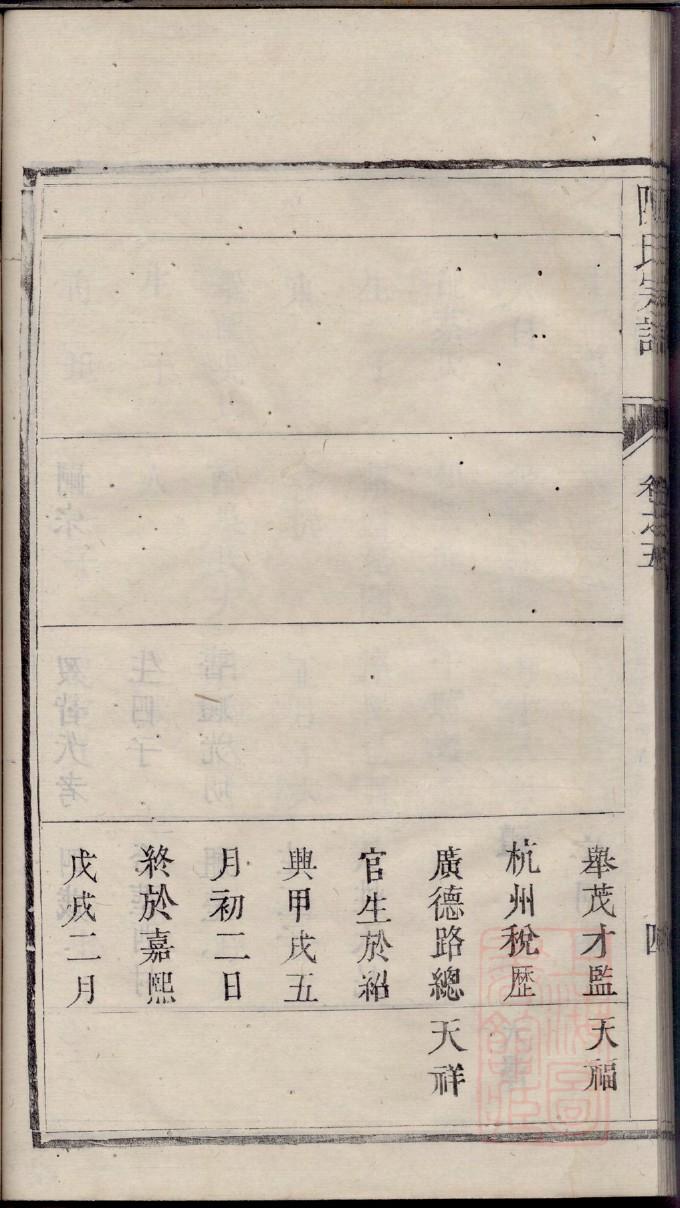 氏宗譜
卷之五
四
舉茂才監
杭州稅歷
廣德路總
官生於紹
興甲戌五
月初二日
終於嘉熙
戊戌二月
天福
天祥